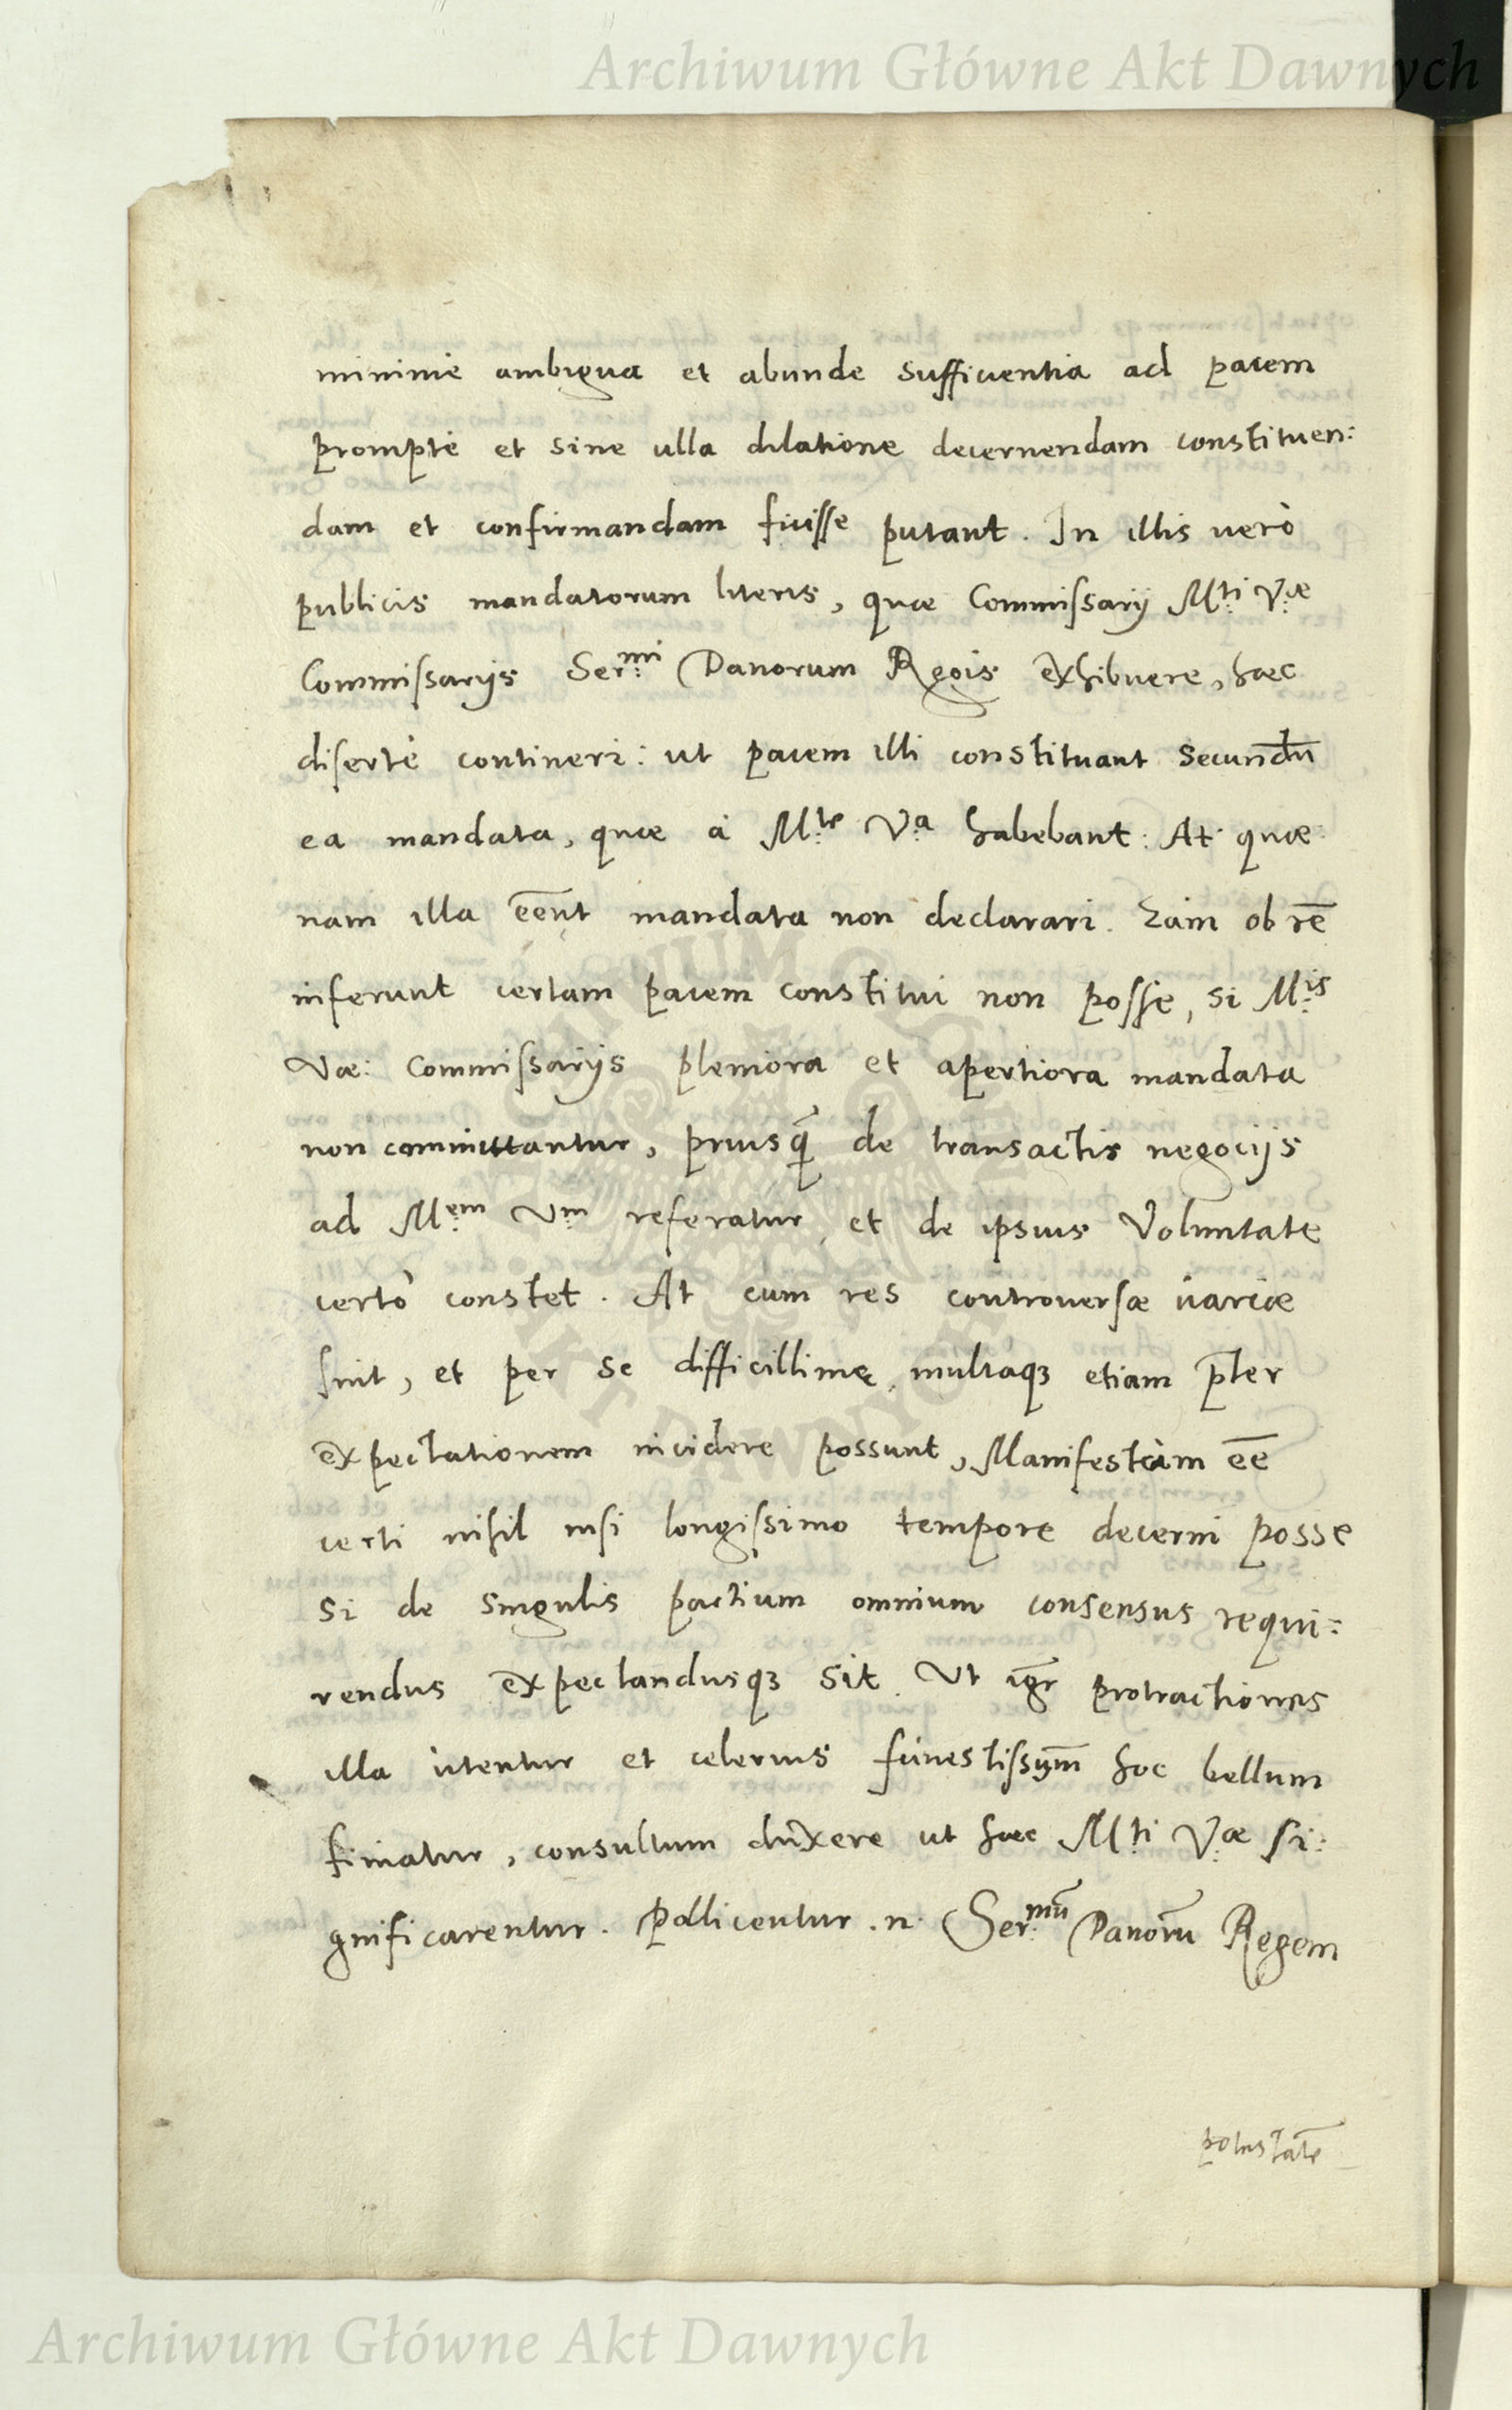 Archiwum Główne Akt Dawnych
minimè ambigua et abunde sufficientia ad pacem
promptè et sine ulla dilatione decernendam constituen:
dam et confirmandam fuisse putant. In illis verò
publicis mandatorum literis, quae Commissarij M:ti V:ae
Commissarijs Ser:mi Danorum Regis exhibuere, haec
disertè contineri: ut pacem illi constituant secundũ
ea mandata, quae à M:te V:a habebant: At quae
nam illa eēnt mandata non declarari. Eam ob rē
inferunt certam pacem constitui non posse, si M:tis
Vae: Commissarijs pleniora et apertiora mandata
non committantur, priusq̃ de transactis negocijs
ad M:em V:m referatur, et de ipsius voluntate
certò constet. At cum res controversae variae
sint, et per se difficillimę, multaqȝ etiam p̄ter
expectationem incidere possunt, Manifestum eē
certi nihil nisi longissimo tempore decerni posse
si de singulis partium omnium consensus requi:
rendus expectandusqȝ sit. Ut igr̃ protractiones
illa vitentur et celerius funestissym̄ hoc bellum
finiatur, consultum duxere ut haec M:ti V:ae si:
gnificarentur. Pollicentur .n. Ser:mũ Danorũ Regem
potestatẽ
Archiwum Główne Akt Dawnych